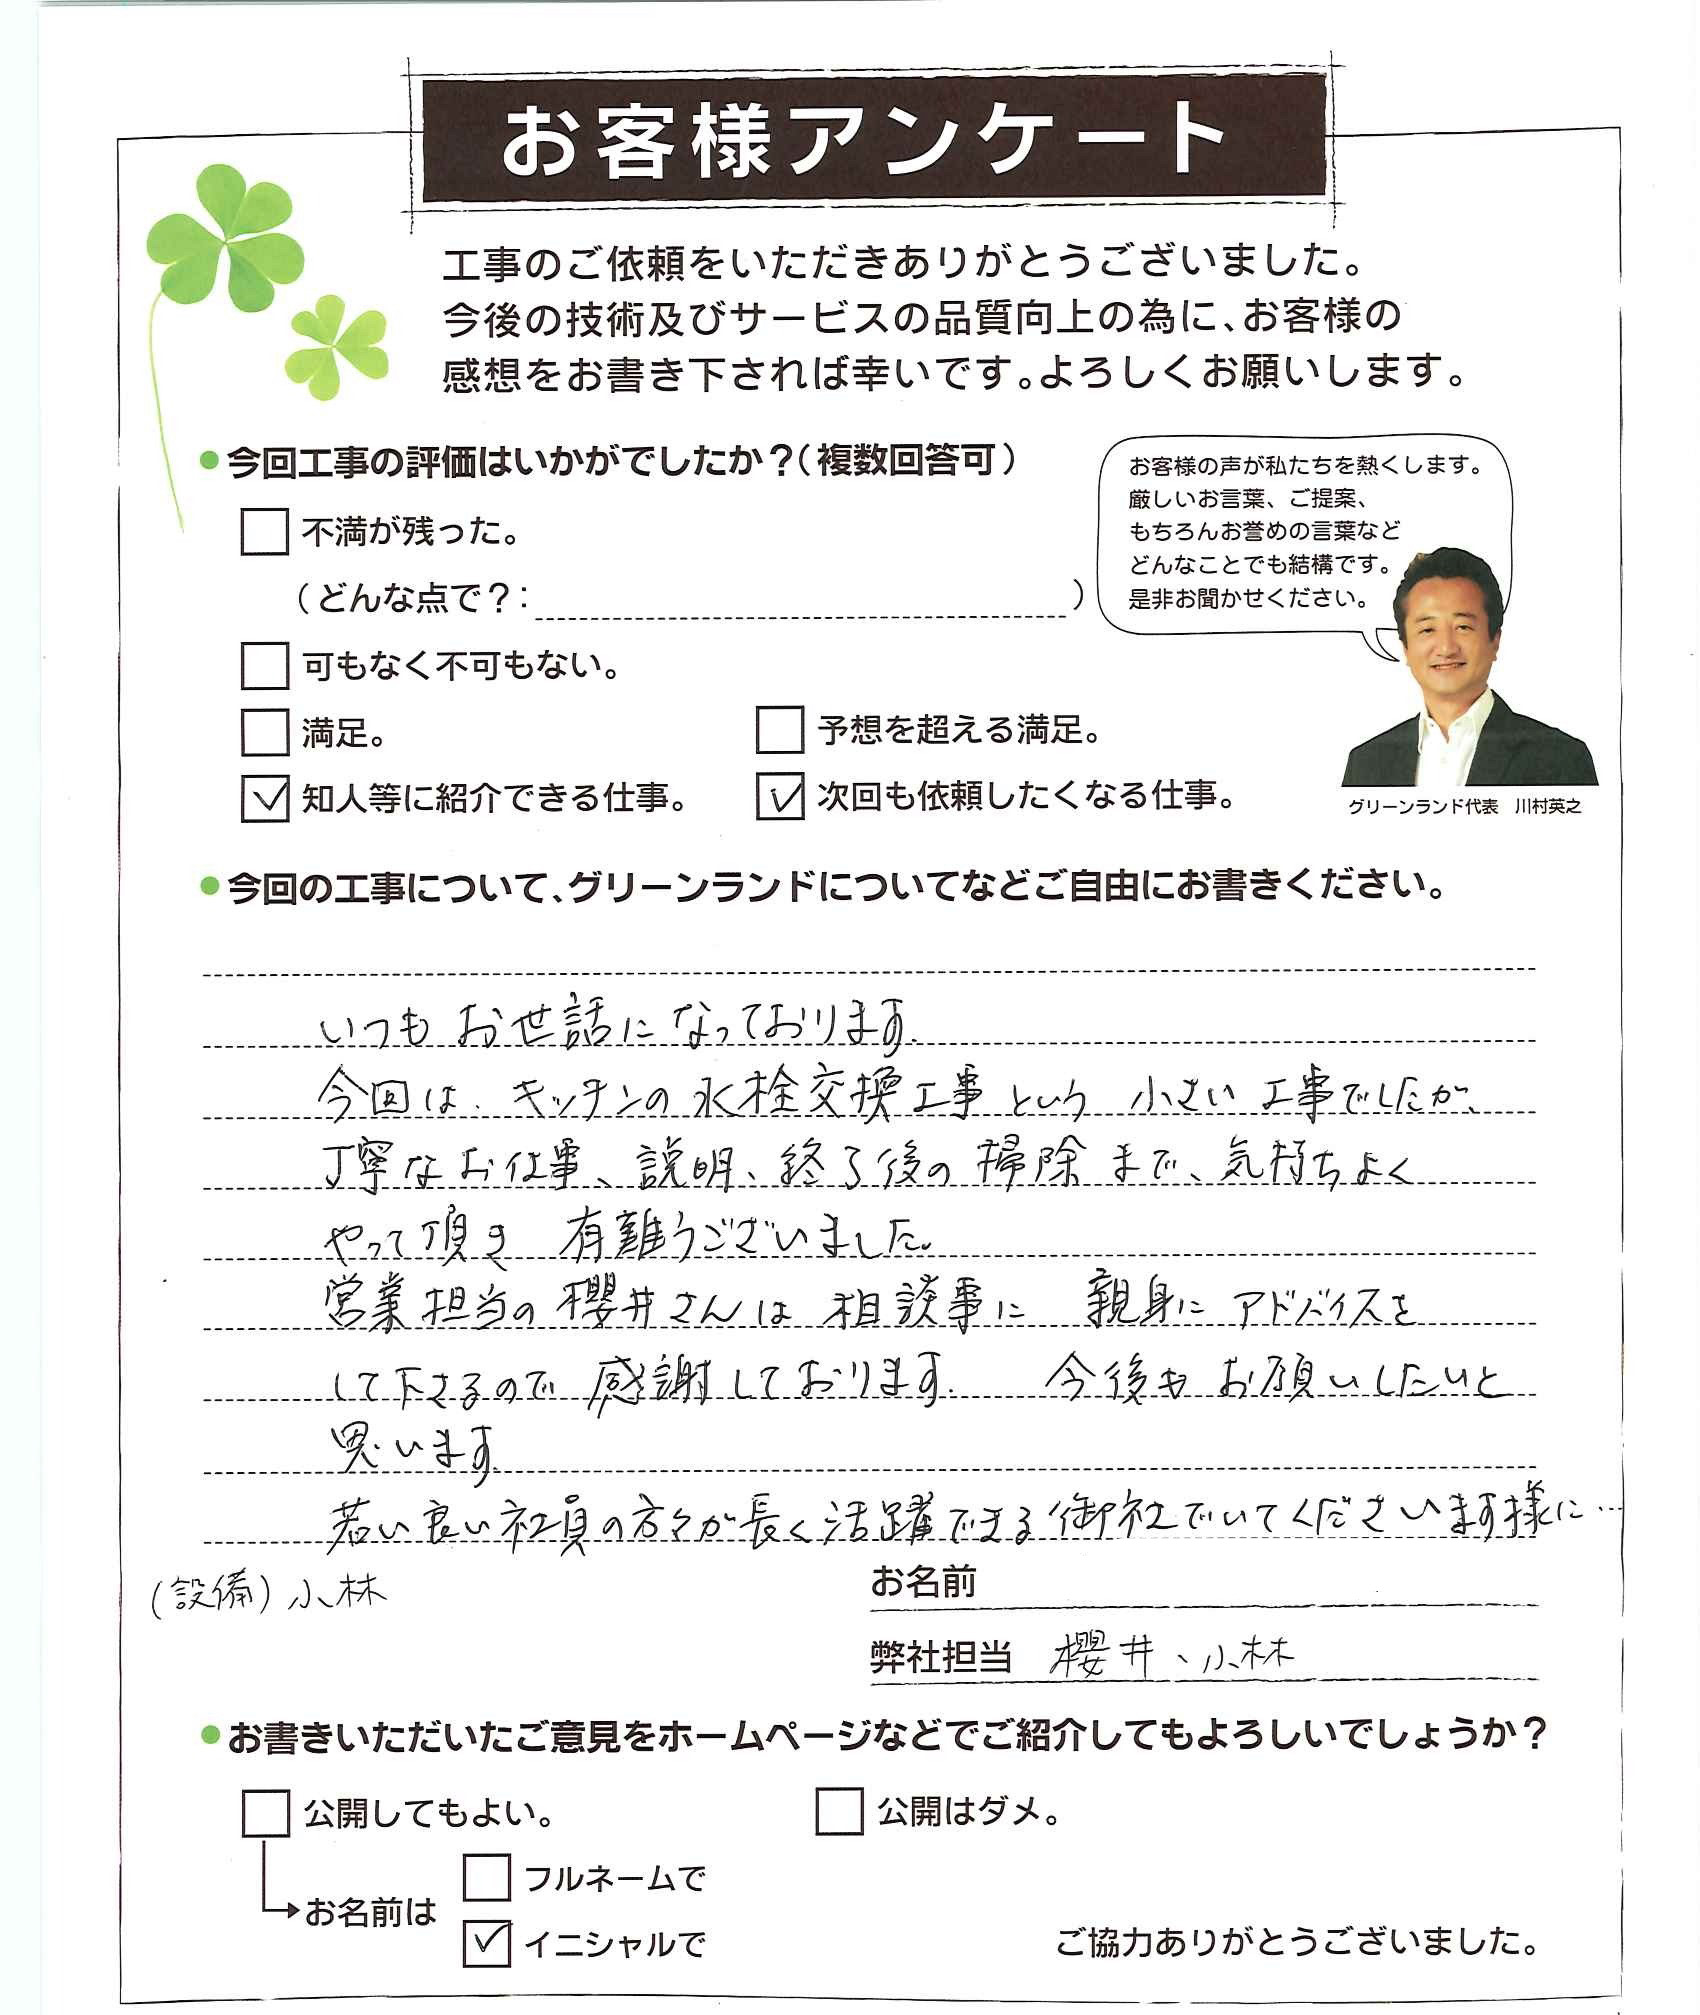 お客様アンケート
工事のご依頼をいただきありがとうございました。
今後の技術及びサービスの品質向上の為に、お客様の
感想をお書き下されば幸いです。よろしくお願いします。
●今回工事の評価はいかがでしたか？（複数回答可）
不満が残った。
（どんな点で？：　）
可もなく不可もない。
満足。
予想を超える満足。
知人等に紹介できる仕事。
次回も依頼したくなる仕事。
お客様の声が私たちを熱くします。
厳しいお言葉、ご提案、
もちろんお誉めの言葉など
どんなことでも結構です。
是非お聞かせください。
グリーンランド代表　川村英之
●今回の工事について、グリーンランドについてなどご自由にお書きください。
いつもお世話になっております.
今回は、キッチンの水栓交換工事という小さい工事でしたが、
丁寧なお仕事、説明、終了後の掃除まで、気持ちよく
やって頂き 有難うございました。
営業担当の櫻井さんは相談事に 親身にアドバイスを
して下さるので感謝しております. 今後もお願いしたいと
思います.
若い良い社員の方々が長く活躍できる御社でいてくださいます様に…
(設備) 小林
お名前
弊社担当 櫻井、小林
●お書きいただいたご意見をホームページなどでご紹介してもよろしいでしょうか？
公開してもよい。
公開はダメ。
お名前は
フルネームで
イニシャルで
ご協力ありがとうございました。